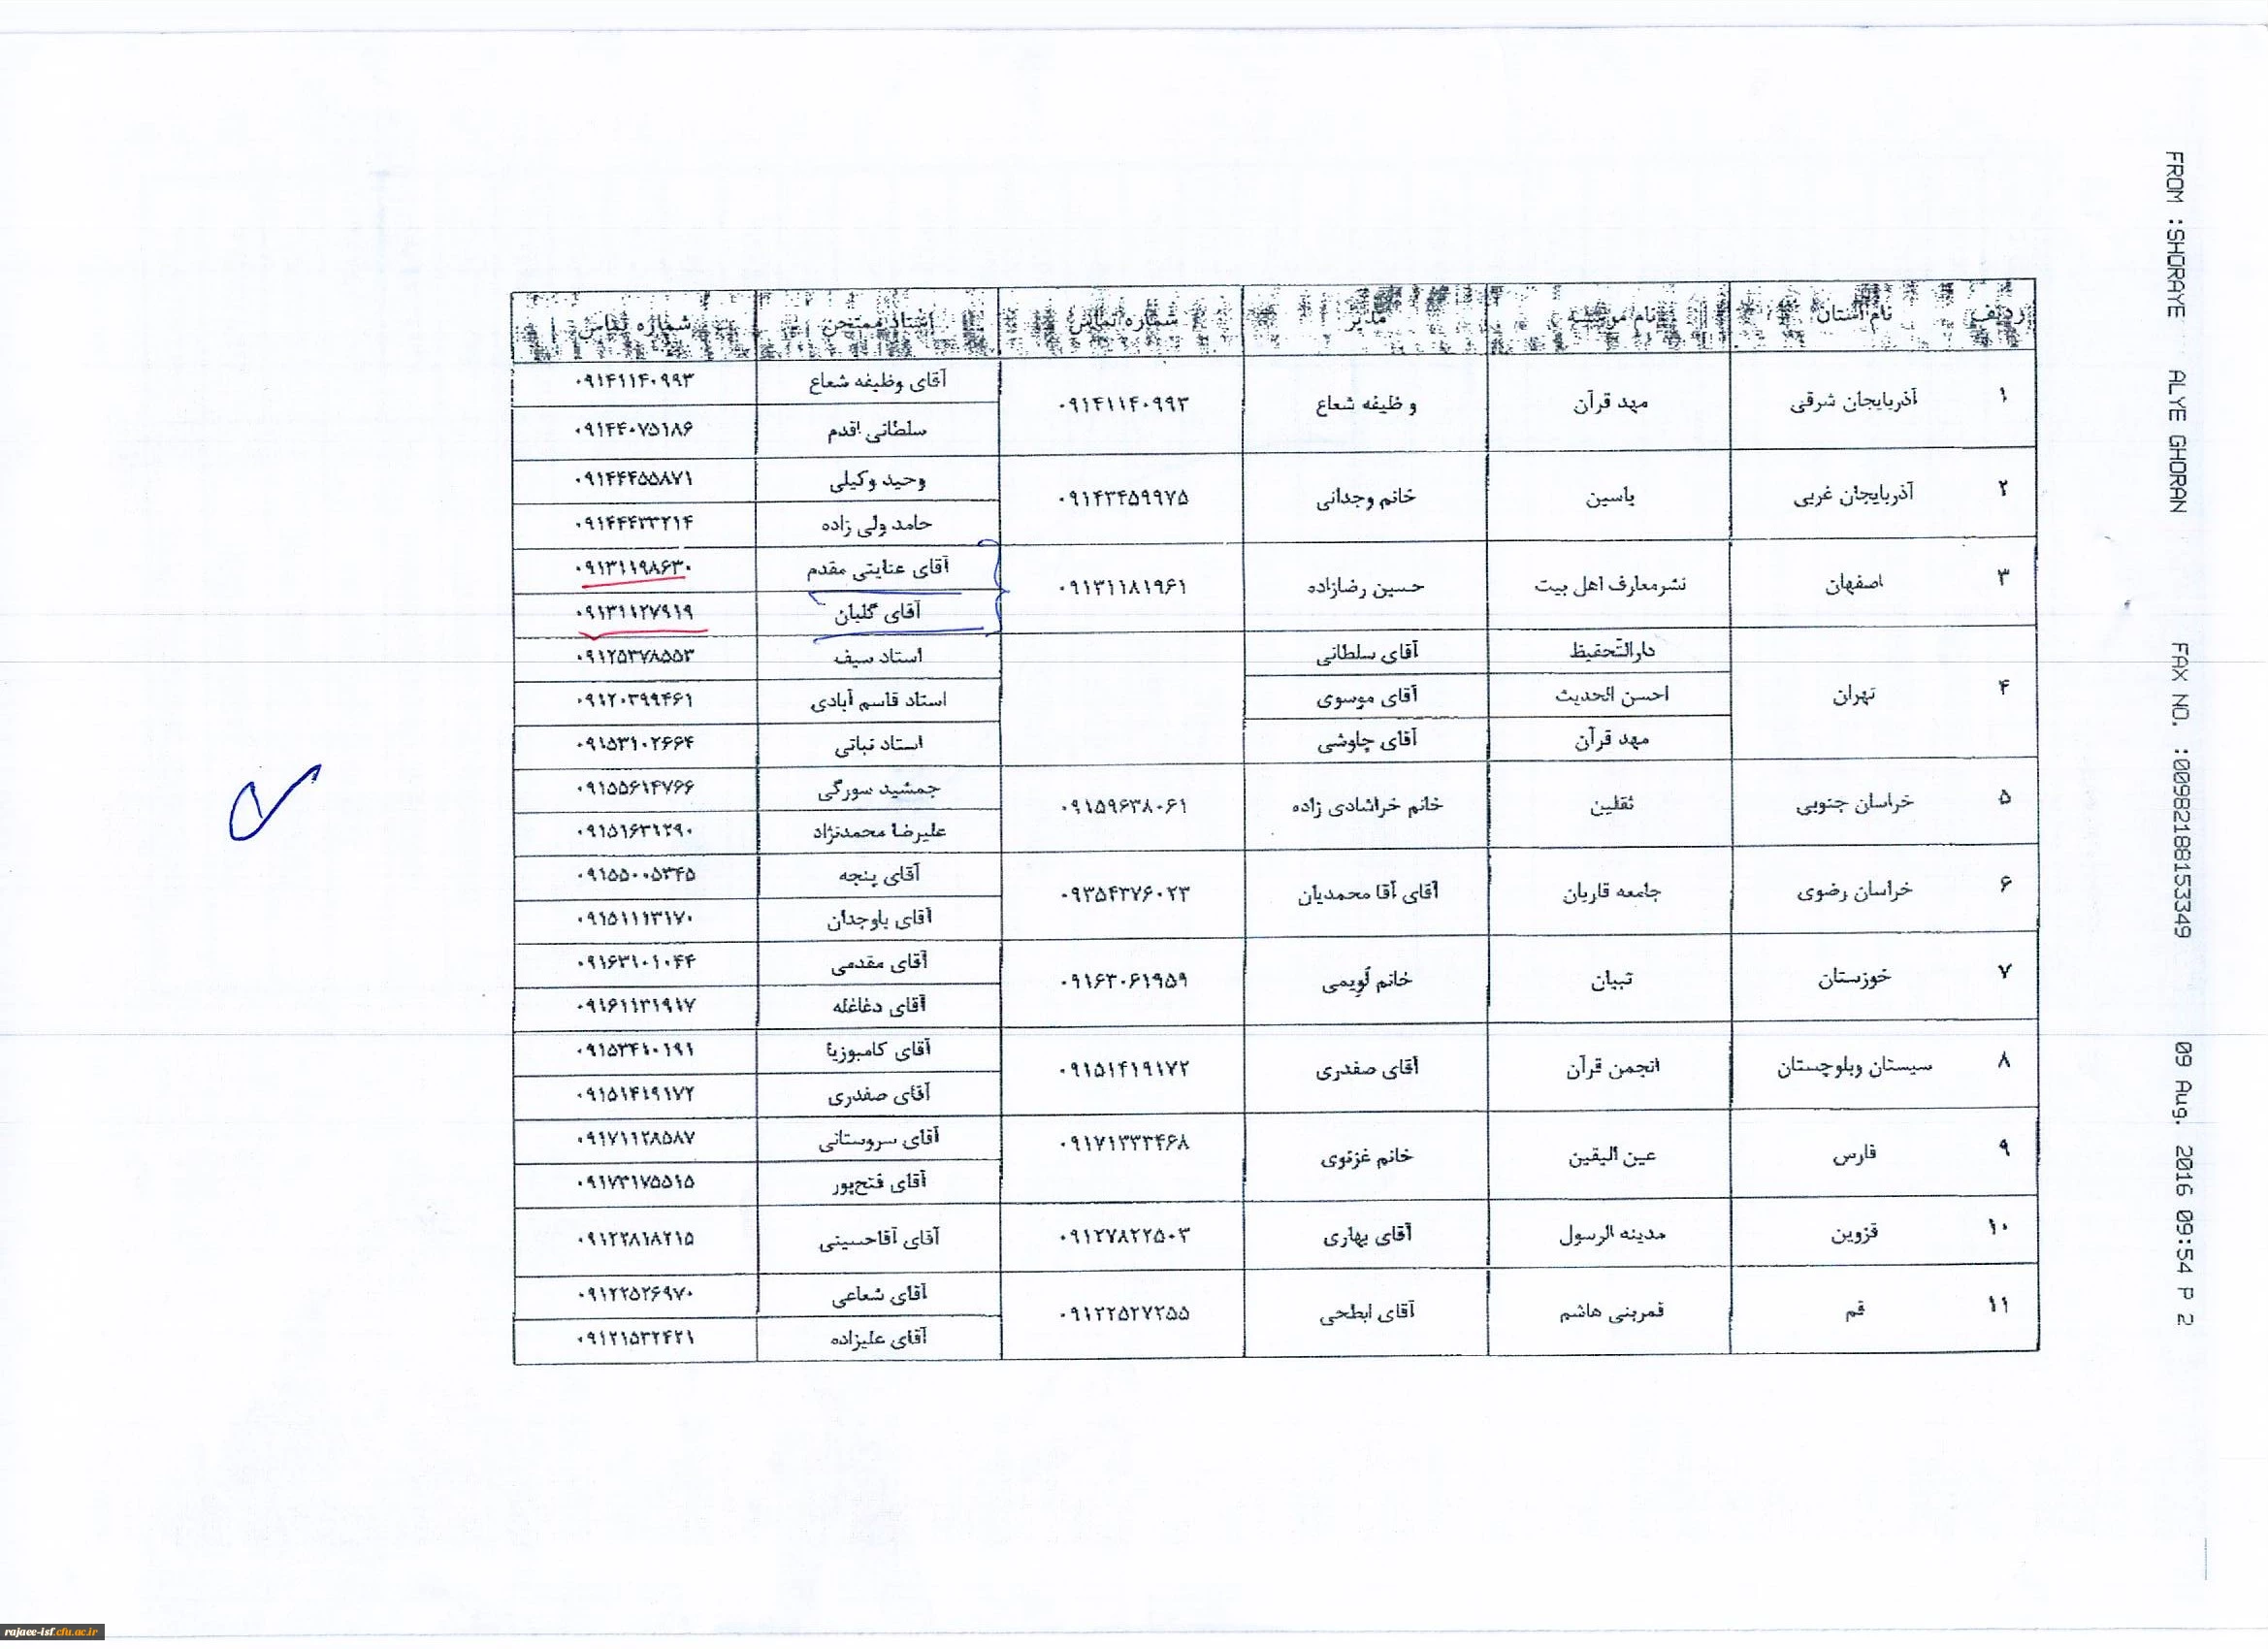 FROM :SHORAYE ALYE GHORAN FAX NO. :00982188153349 09 Aug. 2016 09:54 P 2
ردیف نام استان نام موسسه مدیر شماره تماس استاد ممتحن شماره تماس
۱ آذربایجان شرقی مهد قرآن وظیفه شعاع ۰۹۱۴۱۱۴۰۹۹۳ آقای وظیفه شعاع ۰۹۱۴۱۱۴۰۹۹۳
سلطانی اقدم ۰۹۱۴۴۰۷۵۱۸۶
۲ آذربایجان غربی یاسین خانم وجدانی ۰۹۱۴۳۴۵۹۹۷۵ وحید وکیلی ۰۹۱۴۴۴۵۵۸۷۱
حامد ولی زاده
۳ اصفهان نشرمعارف اهل بیت حسین رضازاده ۰۹۱۳۱۱۸۱۹۶۱ آقای عنایتی مقدم ۰۹۱۳۱۱۹۸۶۳۰
آقای گلبان ۰۹۱۳۱۱۲۷۹۱۹
۴ تهران دارالتحفیظ آقای سلطانی استاد سیف ۰۹۱۲۵۳۷۸۵۵۳
احسن الحدیث آقای موسوی استاد قاسم آبادی ۰۹۱۲۰۳۹۹۴۶۱
مهد قرآن آقای چاوشی استاد نباتی ۰۹۱۵۳۱۰۲۶۶۴
۵ خراسان جنوبی ثقلین خانم خراشادی زاده ۰۹۱۵۹۶۳۸۰۶۱ جمشید سورگی ۰۹۱۵۵۶۱۴۷۶۶
علیرضا محمدنژاد ۰۹۱۵۱۶۳۱۲۹۰
۶ خراسان رضوی جامعه قاریان آقای آقا محمدیان ۰۹۳۵۴۳۷۶۰۲۳ آقای پنجه ۰۹۱۵۵۰۰۵۳۴۵
آقای باوجدان ۰۹۱۵۱۱۱۳۱۷۰
۷ خوزستان تبیان خانم لویمی ۰۹۱۶۳۰۶۱۹۵۹ آقای مقدمی ۰۹۱۶۳۱۰۱۰۴۴
آقای دغاغله ۰۹۱۶۱۱۳۱۹۱۷
۸ سیستان وبلوچستان انجمن قرآن آقای صفدری ۰۹۱۵۱۴۱۹۱۷۲ آقای کامبوزیا ۰۹۱۵۳۴۱۰۱۹۱
آقای صفدری ۰۹۱۵۱۴۱۹۱۷۲
۹ فارس عین الیقین خانم غزنوی ۰۹۱۷۱۳۳۳۴۶۸ آقای سروستانی ۰۹۱۷۱۱۲۸۵۸۷
آقای فتح‌پور ۰۹۱۷۳۱۷۵۵۱۵
۱۰ قزوین مدینه الرسول آقای بهاری ۰۹۱۲۷۸۲۲۵۰۳ آقای آقاحسینی ۰۹۱۲۲۸۱۸۲۱۵
۱۱ قم قمربنی هاشم آقای ابطحی ۰۹۱۲۲۵۲۷۲۵۵ آقای شعاعی ۰۹۱۲۲۵۲۶۹۷۰
آقای علیزاده ۰۹۱۲۱۵۳۲۴۲۱
rajaee-isf.cfu.ac.ir